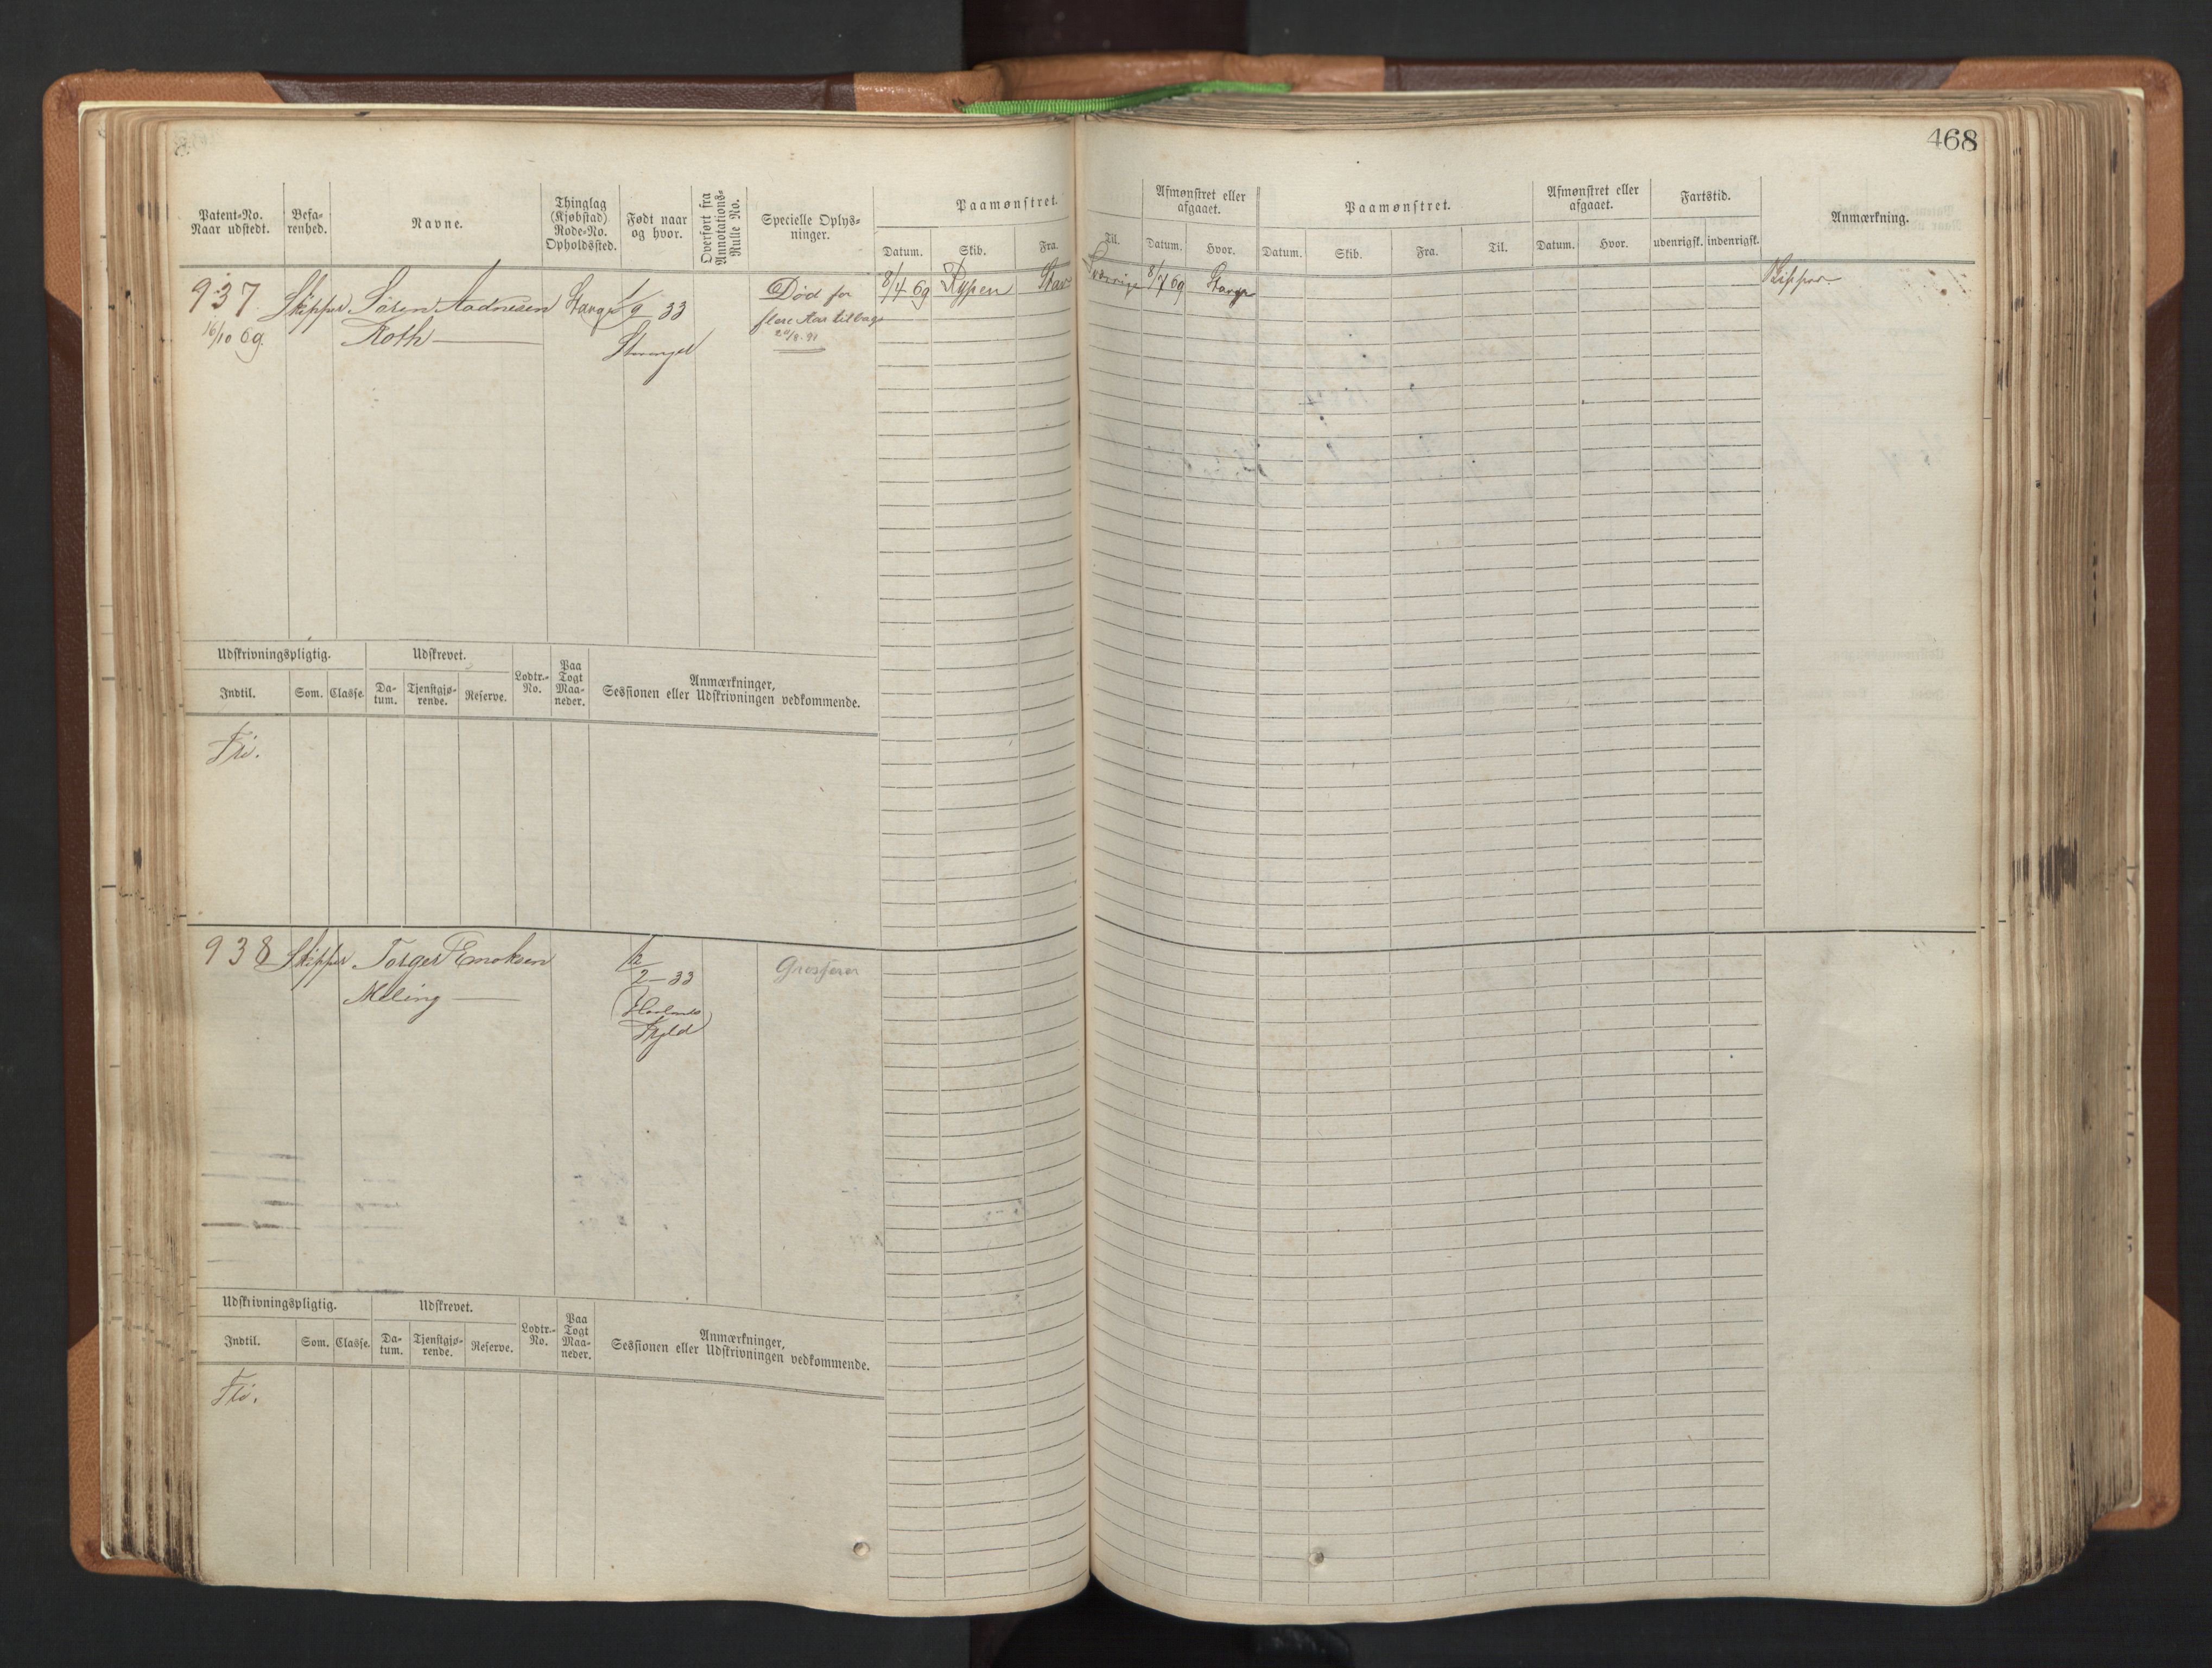 468
Patent=No.
Naar udstedt.
Befa=
renhed.
Navne.
Thinglag
(Kjøbstad)
Rode=No.
Opholdssted.
Født naar
og hvor.
Overført fra
Annotations=
Rulle No.
Specielle Oplys=
ninger.
Paamønstret.
Datum. Skib. Fra. Til.
Afmønstret eller
afgaaet.
Datum. Hvor.
Paamønstret.
Datum. Skib. Fra. Til.
Afmønstret eller
afgaaet.
Datum. Hvor.
Fartstid.
udenrigsk. indenrigsk.
Anmærkning.
937 Skipper Søren Aadnesen Stavgr 1/9 33 Død for 8/4 69 Rypen Stavr Sverrige 8/7 69 Stavgr Skipper
16/10 69 Roth Stavanger flere Aar tilbage
20/8. 91
Udskrivningspligtig. Udskrevet.
Lodtr.=
No.
Paa
Togt
Maa=
neder.
Anmærkninger,
Sessionen eller Udskrivningen vedkommende.
Indtil. Som. Classe. Da=
tum. Tjenstgjø=
rende. Reserve.
Fri.
938 Skipper Torger Enoksen 1/2
2-33
Meling
Skjold
Udskrivningspligtig. Udskrevet.
Lodtr.=
No.
Paa
Togt
Maa=
neder.
Anmærkninger,
Sessionen eller Udskrivningen vedkommende.
Indtil. Som. Classe. Da=
tum. Tjenstgjø=
rende. Reserve.
Fri.